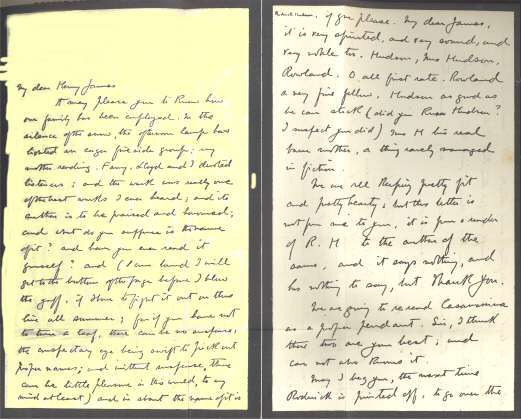 My dear Henry James
It may please you to know how
our family has been employed. In the
silence of the snow, the afternoon lamp has
lighted an eager fireside group; my
mother reading, Fanny, Lloyd and I devoted
listeners; and the work was really one
of the best works I ever heard; and its
author is to be praised and honoured;
and what do you suppose is the name
of it? and have you ever read it
yourself? and (I am bound I will
get to the bottom of the page before I blow
the gaff, if I have to fight it out on this
line all summer; for if you have not
to turn a leaf, there can be no suspense,
the conspectory eye being swift to pick out
proper names; and without suspense, there
can be little pleasure in this world, to my
mind at least) and in about the name of it is
Roderick Hudson, if you please. My dear James,
it is very spirited, and very sound, and
very noble too. Hudson, Mrs Hudson,
Rowland, O, all first rate. Rowland
a very fine fellow, Hudson as good as
he can stick (did you know Hudson?
I suspect you did) Mrs H his real
born mother, a thing rarely managed
in fiction.
We are all keeping pretty fit
and pretty hearty; but this letter is
not from me to you, it is from a reader
of R. H. to the author of the
same, and it says nothing, and
has nothing to say, but Thank You.
We are going to reread Casamassima
as a proper pendant. Sir, I think
these two are your best; and
care not who knows it.
May I beg you, the next time
Roderick is printed off, to go over the